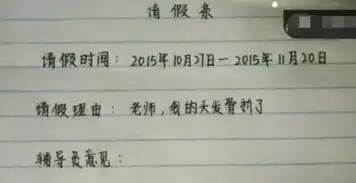 请假条
请假时间：2015年10月27日—2015年11月20日
请假理由：老师，我的头发骨折了
辅导员意见：